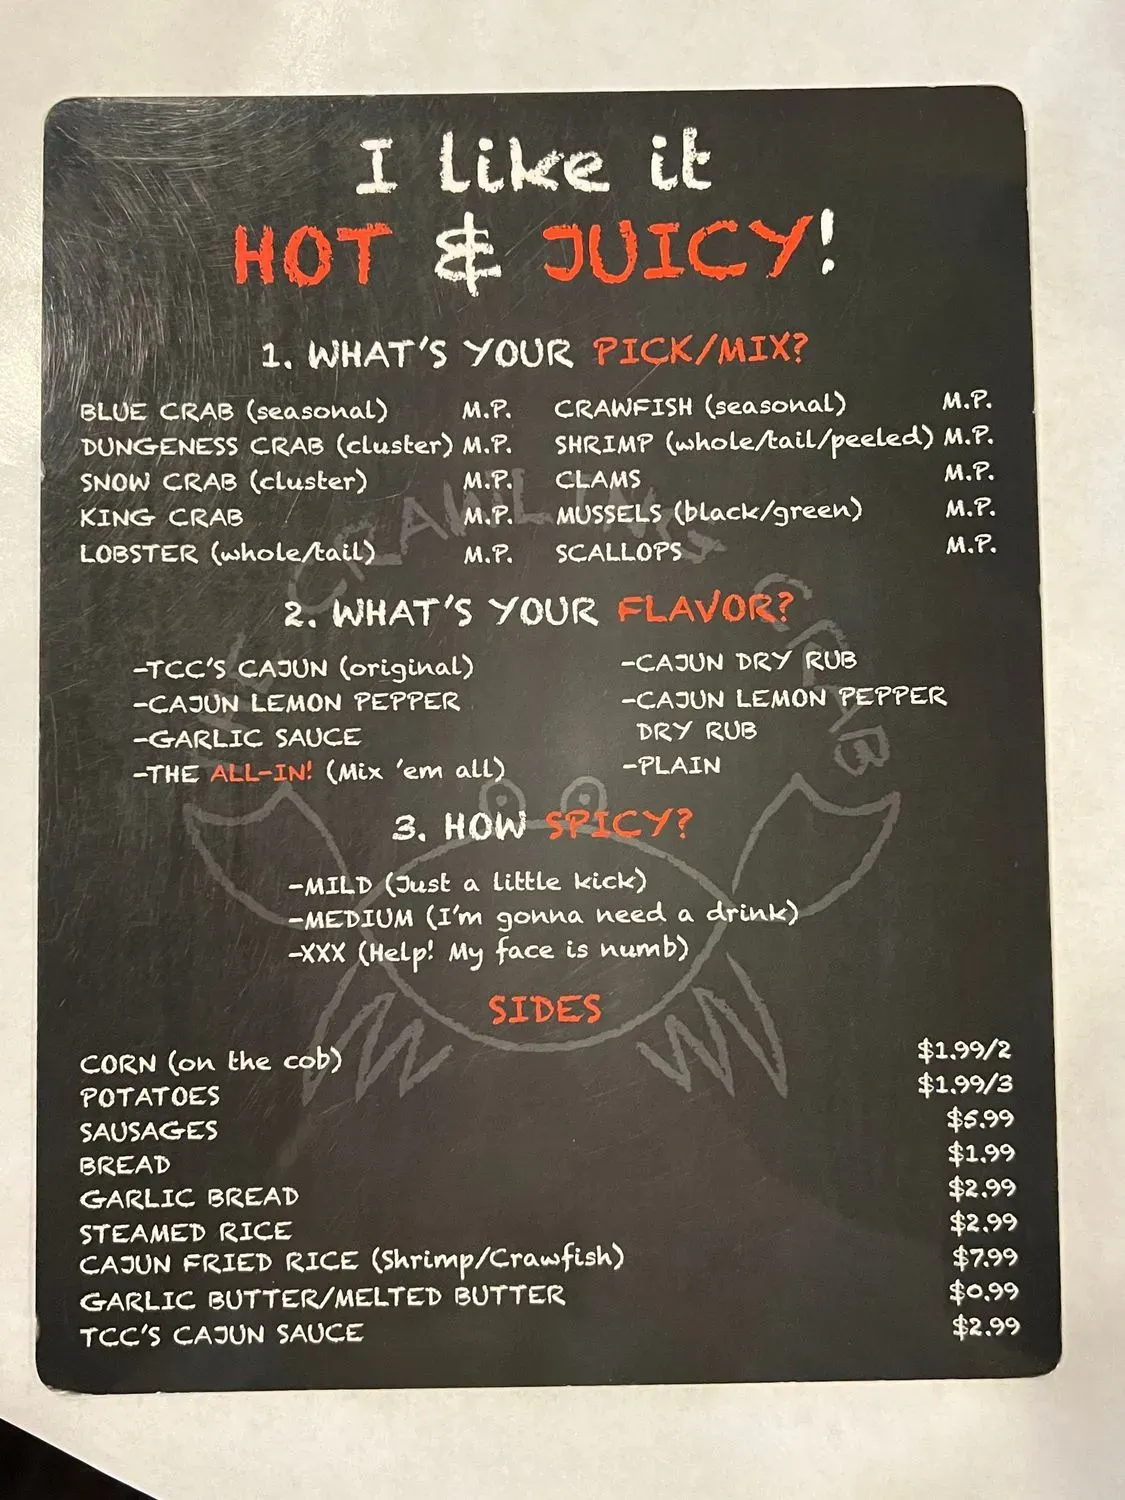 I like it
HOT & JUICY!
1. WHAT'S YOUR PICK/MIX?
BLUE CRAB (seasonal) M.P.
DUNGENESS CRAB (cluster) M.P.
SNOW CRAB (cluster) M.P.
KING CRAB M.P.
LOBSTER (whole/tail) M.P.
CRAWFISH (seasonal) M.P.
SHRIMP (whole/tail/peeled) M.P.
CLAMS M.P.
MUSSELS (black/green) M.P.
SCALLOPS M.P.
THE CRAWLING CRAB
2. WHAT'S YOUR FLAVOR?
-TCC'S CAJUN (original)
-CAJUN LEMON PEPPER
-GARLIC SAUCE
-THE ALL-IN! (Mix 'em all)
-CAJUN DRY RUB
-CAJUN LEMON PEPPER
DRY RUB
-PLAIN
3. HOW SPICY?
-MILD (Just a little kick)
-MEDIUM (I'm gonna need a drink)
-XXX (Help! My face is numb)
SIDES
CORN (on the cob) $1.99/2
POTATOES $1.99/3
SAUSAGES $5.99
BREAD $1.99
GARLIC BREAD $2.99
STEAMED RICE $2.99
CAJUN FRIED RICE (Shrimp/Crawfish) $7.99
GARLIC BUTTER/MELTED BUTTER $0.99
TCC'S CAJUN SAUCE $2.99